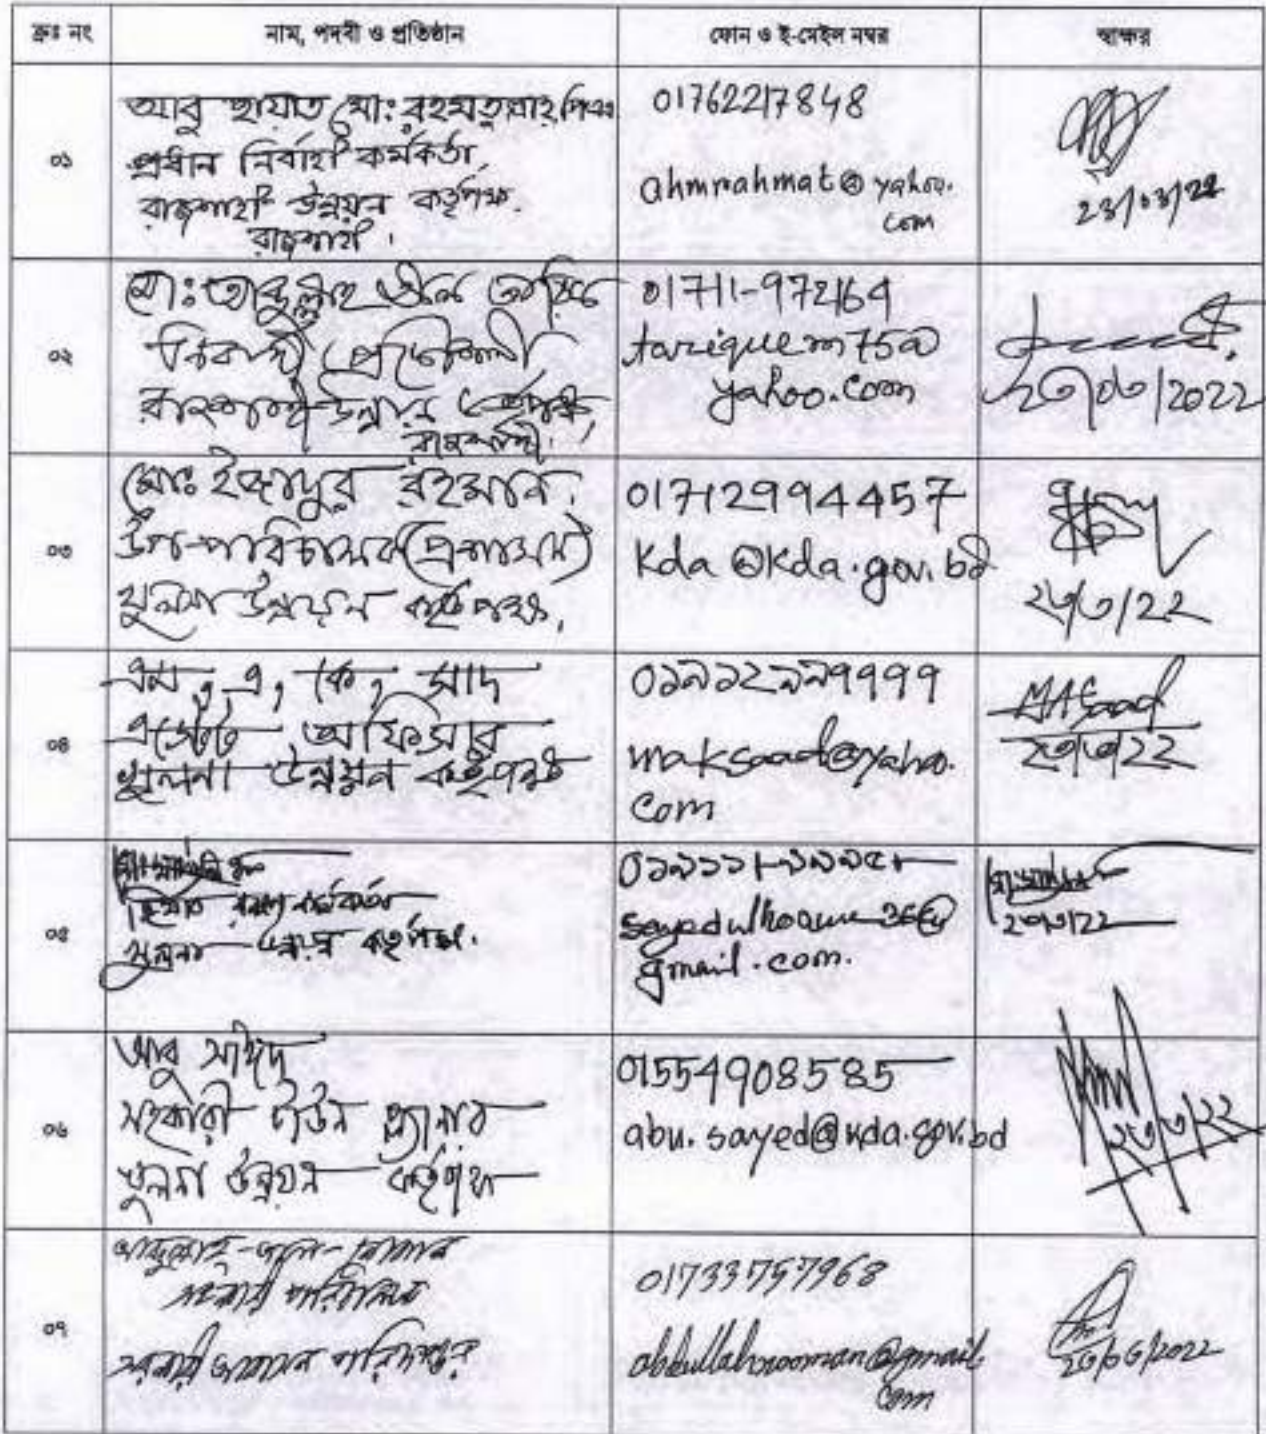 ক্রঃ নং নাম, পদবী ও প্রতিষ্ঠান ফোন ও ই-মেইল নম্বর স্বাক্ষর
০১
আবু হায়াত মোঃ রহমতুল্লাহ, পিএএ
প্রধান নির্বাহী কর্মকর্তা,
রাজশাহী উন্নয়ন কর্তৃপক্ষ.
রাজশাহী।
01762217848
ahmrahmat@yahoo.
com
২৩/০৩/২২
০২
মোঃ আব্দুল্লাহ আল তারিক
নির্বাহী প্রকৌশলী
রাজশাহী উন্নয়ন কর্তৃপক্ষ,
রাজশাহী।
01711-972164
tariquem75@
yahoo.com
২৩/০৩/2022
০৩
মোঃ ইজাদুর রহমান.
উপ-পরিচালক(প্রশাসন)
খুলনা উন্নয়ন কর্তৃপক্ষ,
01712994457
kda@kda.gov.bd
২৩/৩/২২
০৪
এম, এ, কে, সাদ
এস্টেট অফিসার
খুলনা উন্নয়ন কর্তৃপক্ষ
০১৯১২৯৯৭৭৭৭
maksaad@yahoo.
com
MASaad
২৩/৩/২২
০৫
হিসাব রক্ষণ কর্মকর্তা
খুলনা উন্নয়ন কর্তৃপক্ষ.
gmail.com.
২৩/৩/২২
০৬
আবু সাঈদ
সহকারী টাউন প্ল্যানার
খুলনা উন্নয়ন কর্তৃপক্ষ
01554908585
abu.sayed@kda.gov.bd
২৩/৩/২২
০৭
আব্দুল্লাহ-আল-নোমান
সহকারী পরিচালক
সরকারী আবাসন পরিদপ্তর
01733757968
abdullahnooman@gmail.
com
২৩/০৩/2022